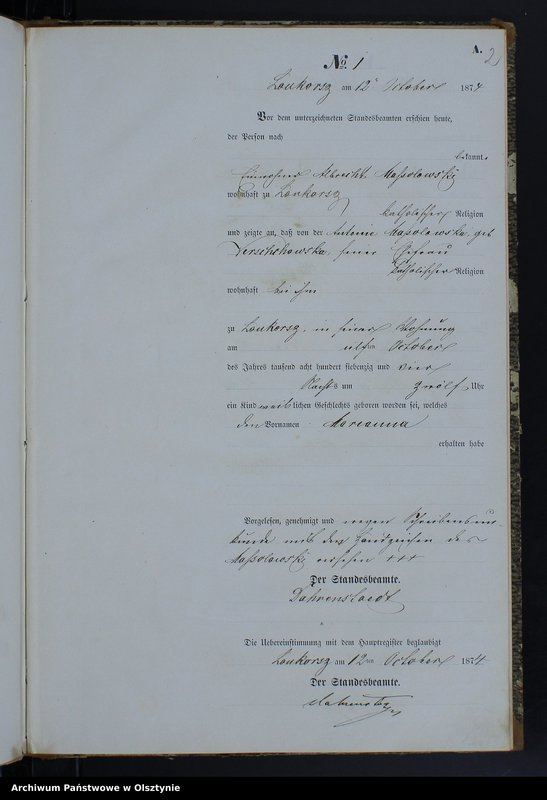 A.
2
No 1
Loukorsz am 12 October 1874
Vor dem unterzeichneten Standesbeamten erschien heute,
der Person nach
bekannt,
Einwohner Albrecht Maßolowski
wohnhaft zu Loukorsz
katholischer Religion
und zeigte an, daß von der Antonie Maßolowska, geb
seiner Ehefrau
katholischer Religion
wohnhaft bei ihm
zu Loukorsz, in seiner Wohnung
am elften October
des Jahres tausend acht hundert siebenzig und vier
Nachts um zwölf Uhr
ein Kind weiblichen Geschlechts geboren worden sei, welches
den Vornamen Marianna
erhalten habe
Vorgelesen, genehmigt und wegen Schreibensun-
kunde mit dem Handzeichen des
Maßolowski versehen +++
Der Standesbeamte.
Dahrenstaedt
Die Uebereinstimmung mit dem Hauptregister beglaubigt
Loukorsz am 12ten October 1874
Der Standesbeamte.
Archiwum Państwowe w Olsztynie